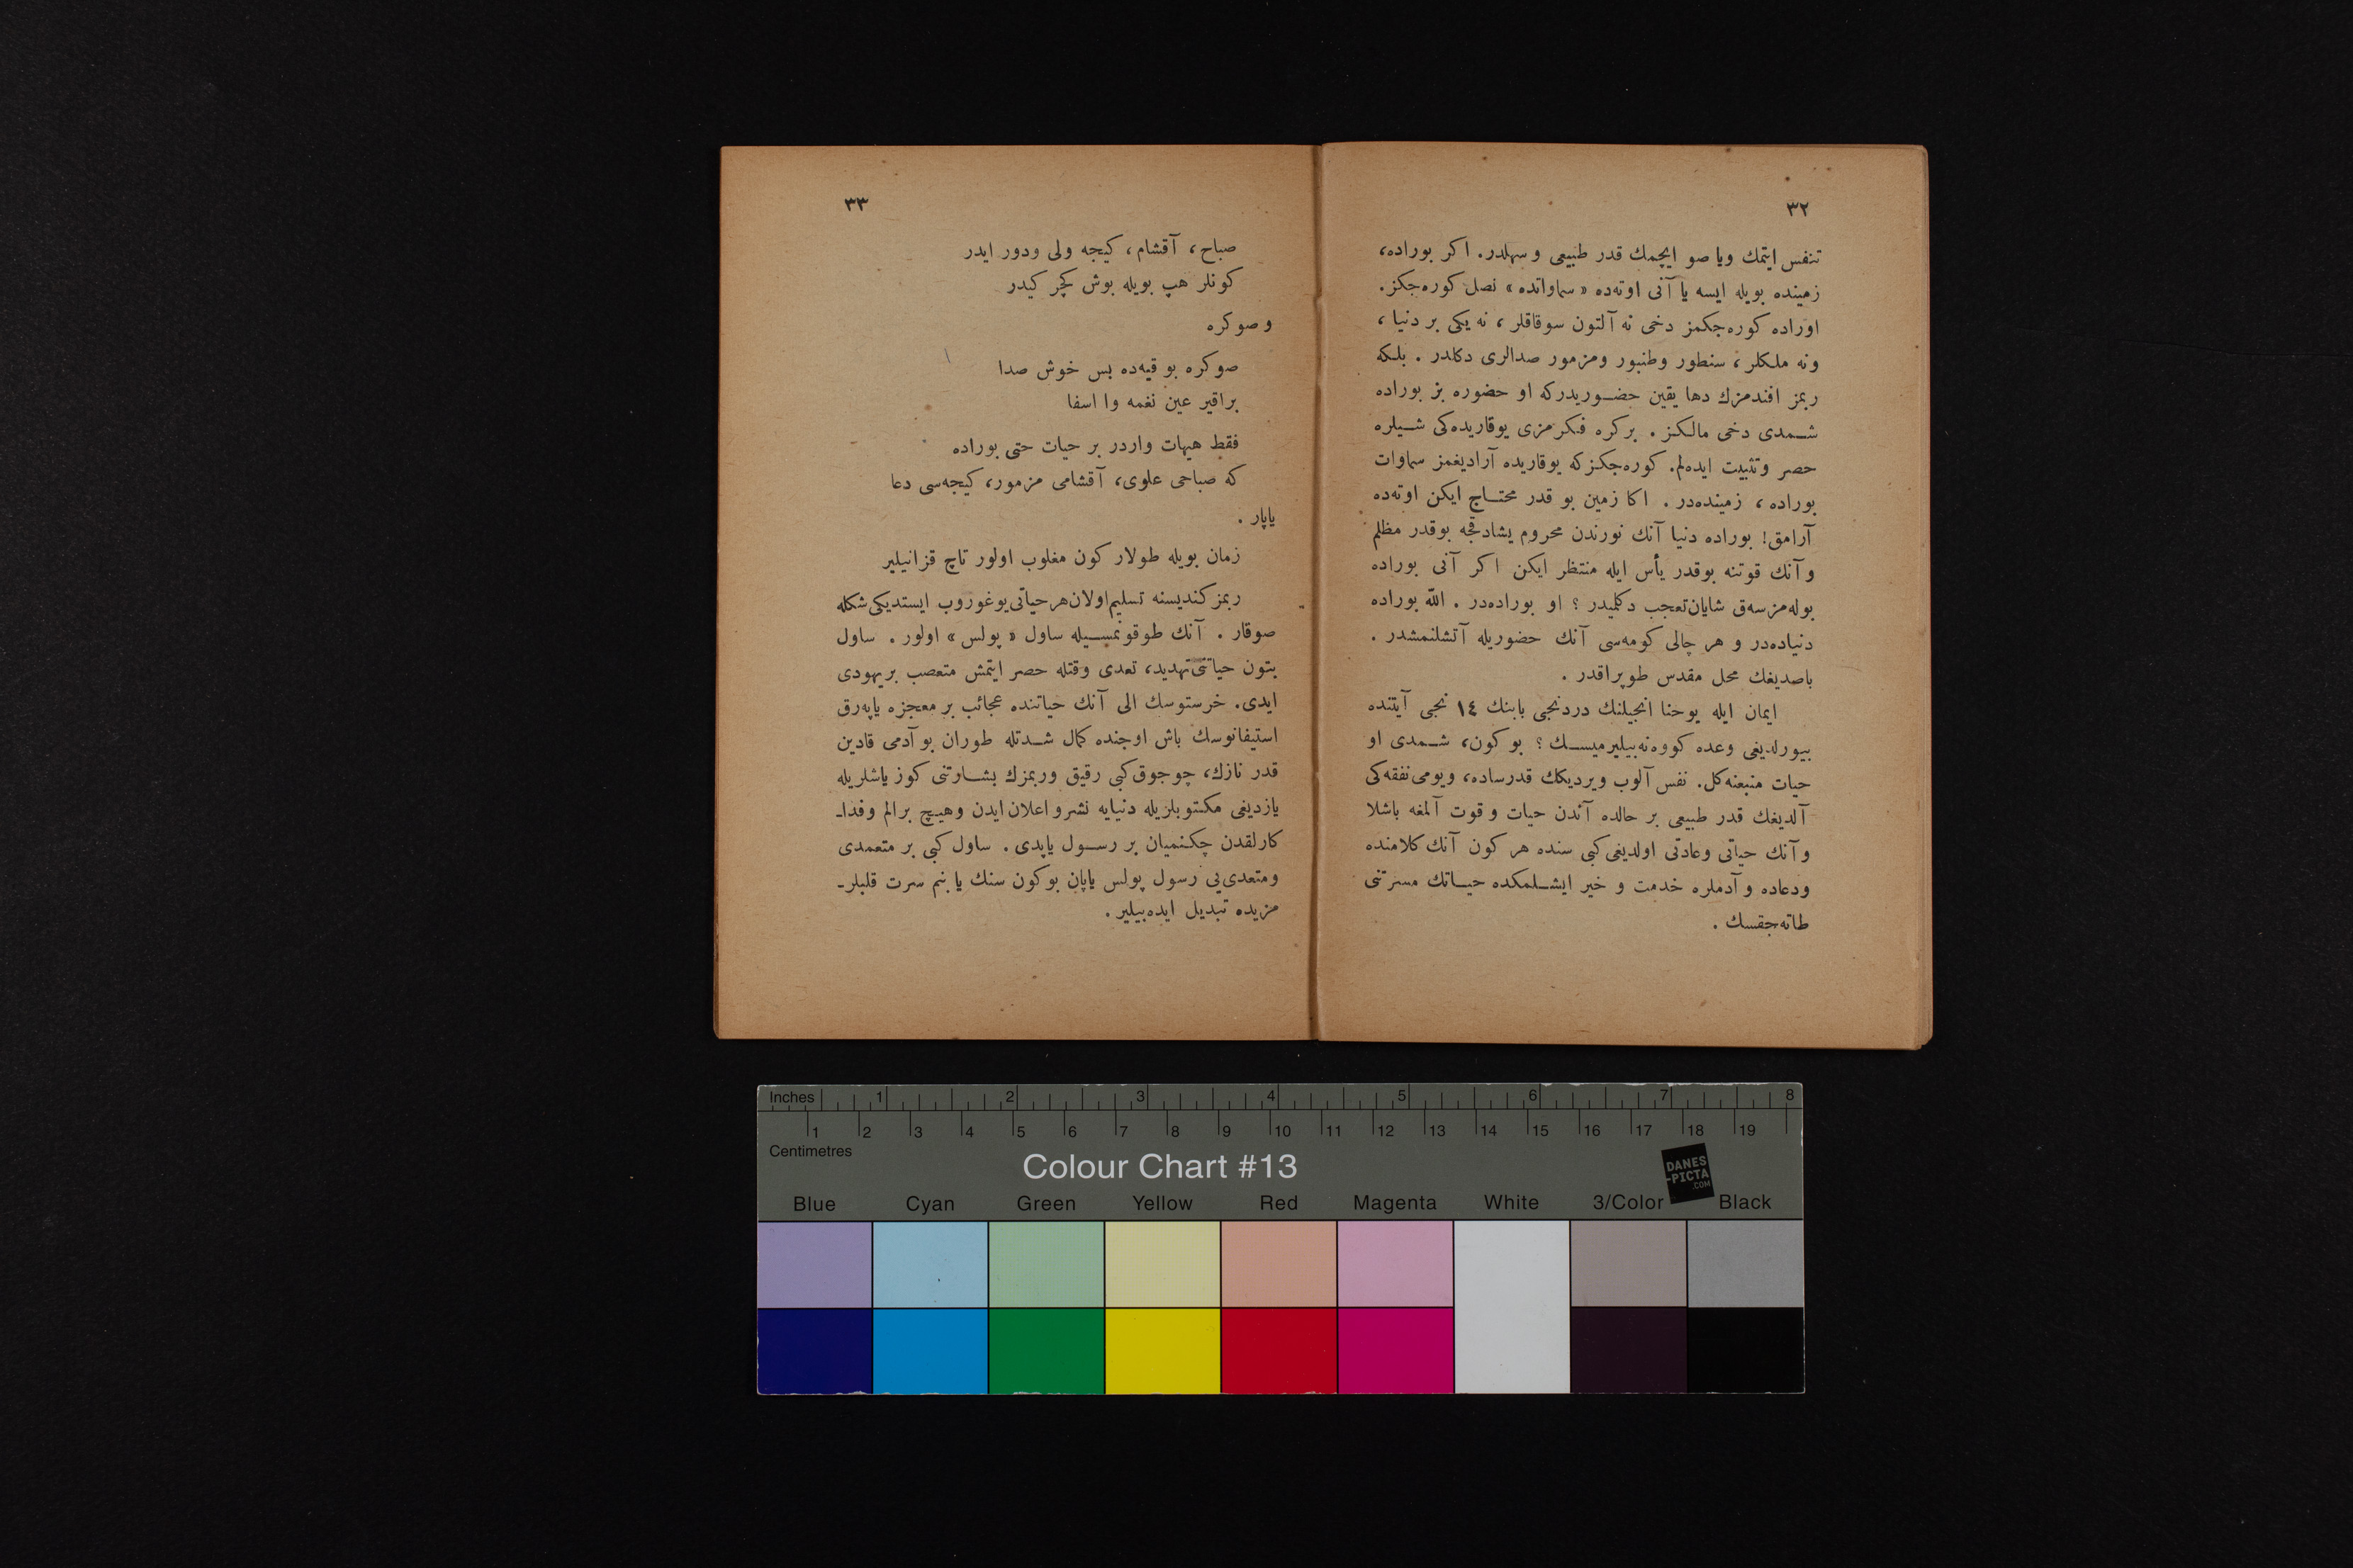 ٣٢
تنفس ایتمك ویا صو ایچمك قدر طبیعی و سهلدر. اكر بوراده،
زمینده بویله ایسه یا آنی اوته‌ده «سماواتده» نصل كوره‌جكز.
اوراده كوره‌جكمز دخی نه آلتون سوقاقلر، نه یكی بر دنیا،
ونه ملكلر، سنطور وطنبور ومزمور صدالری دكلدر. بلكه
ربمز افندمزك دها یقین حضوریدركه او حضوره بز بوراده
شمدی دخی مالكز. بركره فكرمزی یوقاریده‌كی شیلره
حصر وتثبیت ایده‌لم. كوره‌جكزكه یوقاریده آرادیغمز سماوات
بوراده، زمینده‌در. اكا زمین بو قدر محتاج ایكن اوته‌ده
آرامق! بوراده دنیا آنك نورندن محروم یشادقجه بوقدر مظلم
وآنك قوتنه بوقدر یأس ایله منتظر ایكن اكر آنی بوراده
بوله‌مزسه‌ق شایان تعجب دكلمیدر؟ او بوراده‌در. الله بوراده
دنیاده‌در و هر چالی كومه‌سی آنك حضوریله آتشلنمشدر.
باصدیغك محل مقدس طوپراقدر.
ایمان ایله یوحنا انجیلنك دردنجی بابنك ١٤ نجی آیتنده
بیورلدیغی وعده كووه‌نه‌بیلیرمیسك؟ بو كون، شمدی او
حیات منبعنه كل. نفس آلوب ویردیكك قدرساده، ویومی نفقه‌كی
آلدیغك قدر طبیعی بر حالده آندن حیات و قوت آلمغه باشلا
وآنك حیاتی وعادتی اولدیغی كبی سنده هر كون آنك كلامنده
ودعاده و آدملره خدمت و خیر ایشلمكده حیاتك مسرتنی
طاته‌جقسك.
٣٣
صباح، آقشام، كیجه ولی ودور ایدر
كونلر هپ بویله بوش كچر كیدر
و صوكره
صوكره بو قیه‌ده بس خوش صدا
براقیر عین نغمه وا اسفا
فقط هیهات واردر بر حیات حتی بوراده
كه صباحی علوی، آقشامی مزمور، كیجه‌سی دعا
یاپار.
زمان بویله طولار كون مغلوب اولور تاج قزانیلیر
ربمز كندیسنه تسلیم اولان هرحیاتی یوغوروب ایستدیكی شكله
صوقار. آنك طوقونمسیله ساول «پولس» اولور. ساول
بتون حیاتنی تهدید، تعدی وقتله حصر ایتمش متعصب بریهودی
ایدی. خرستوسك الی آنك حیاتنده عجائب بر معجزه یاپه‌رق
استیفانوسك باش اوجنده كمال شدتله طوران بو آدمی قادین
قدر نازك، چوجوق كبی رقیق وربمزك بشارتنی كوز یاشلریله
یازدیغی مكتوبلریله دنیایه نشرو اعلان ایدن وهیچ برالم وفدا-
كارلقدن چكنمیان بر رسول یاپدی. ساول كبی بر متعمدی
ومتعدی‌یی رسول پولس یاپان بوكون سنك یا بنم سرت قلبلر-
مزیده تبدیل ایده‌بیلیر.
Inches 1 2 3 4 5 6 7 8
1 2 3 4 5 6 7 8 9 10 11 12 13 14 15 16 17 18 19
Centimetres
Colour Chart #13
DANES
-PICTA
.COM
Blue Cyan Green Yellow Red Magenta White 3/Color Black